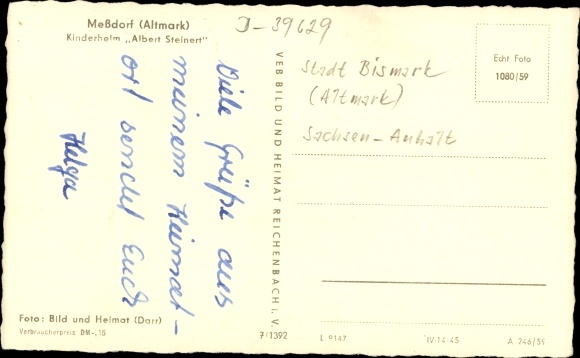 Meßdorf (Altmark)
Kinderheim „Albert Steinert"
D-39629
Viele Grüße aus
meinem Heimat-
ort sendet Euch
Helga
VEB BILD UND HEIMAT REICHENBACH i. V.
Stadt Bismark
(Altmark)
Sachsen-Anhalt
Echt Foto
1080/59
Foto: Bild und Heimat (Darr)
Verbraucherpreis DM -,15
7/1392
L 9147
IV-14-45
A 246/59